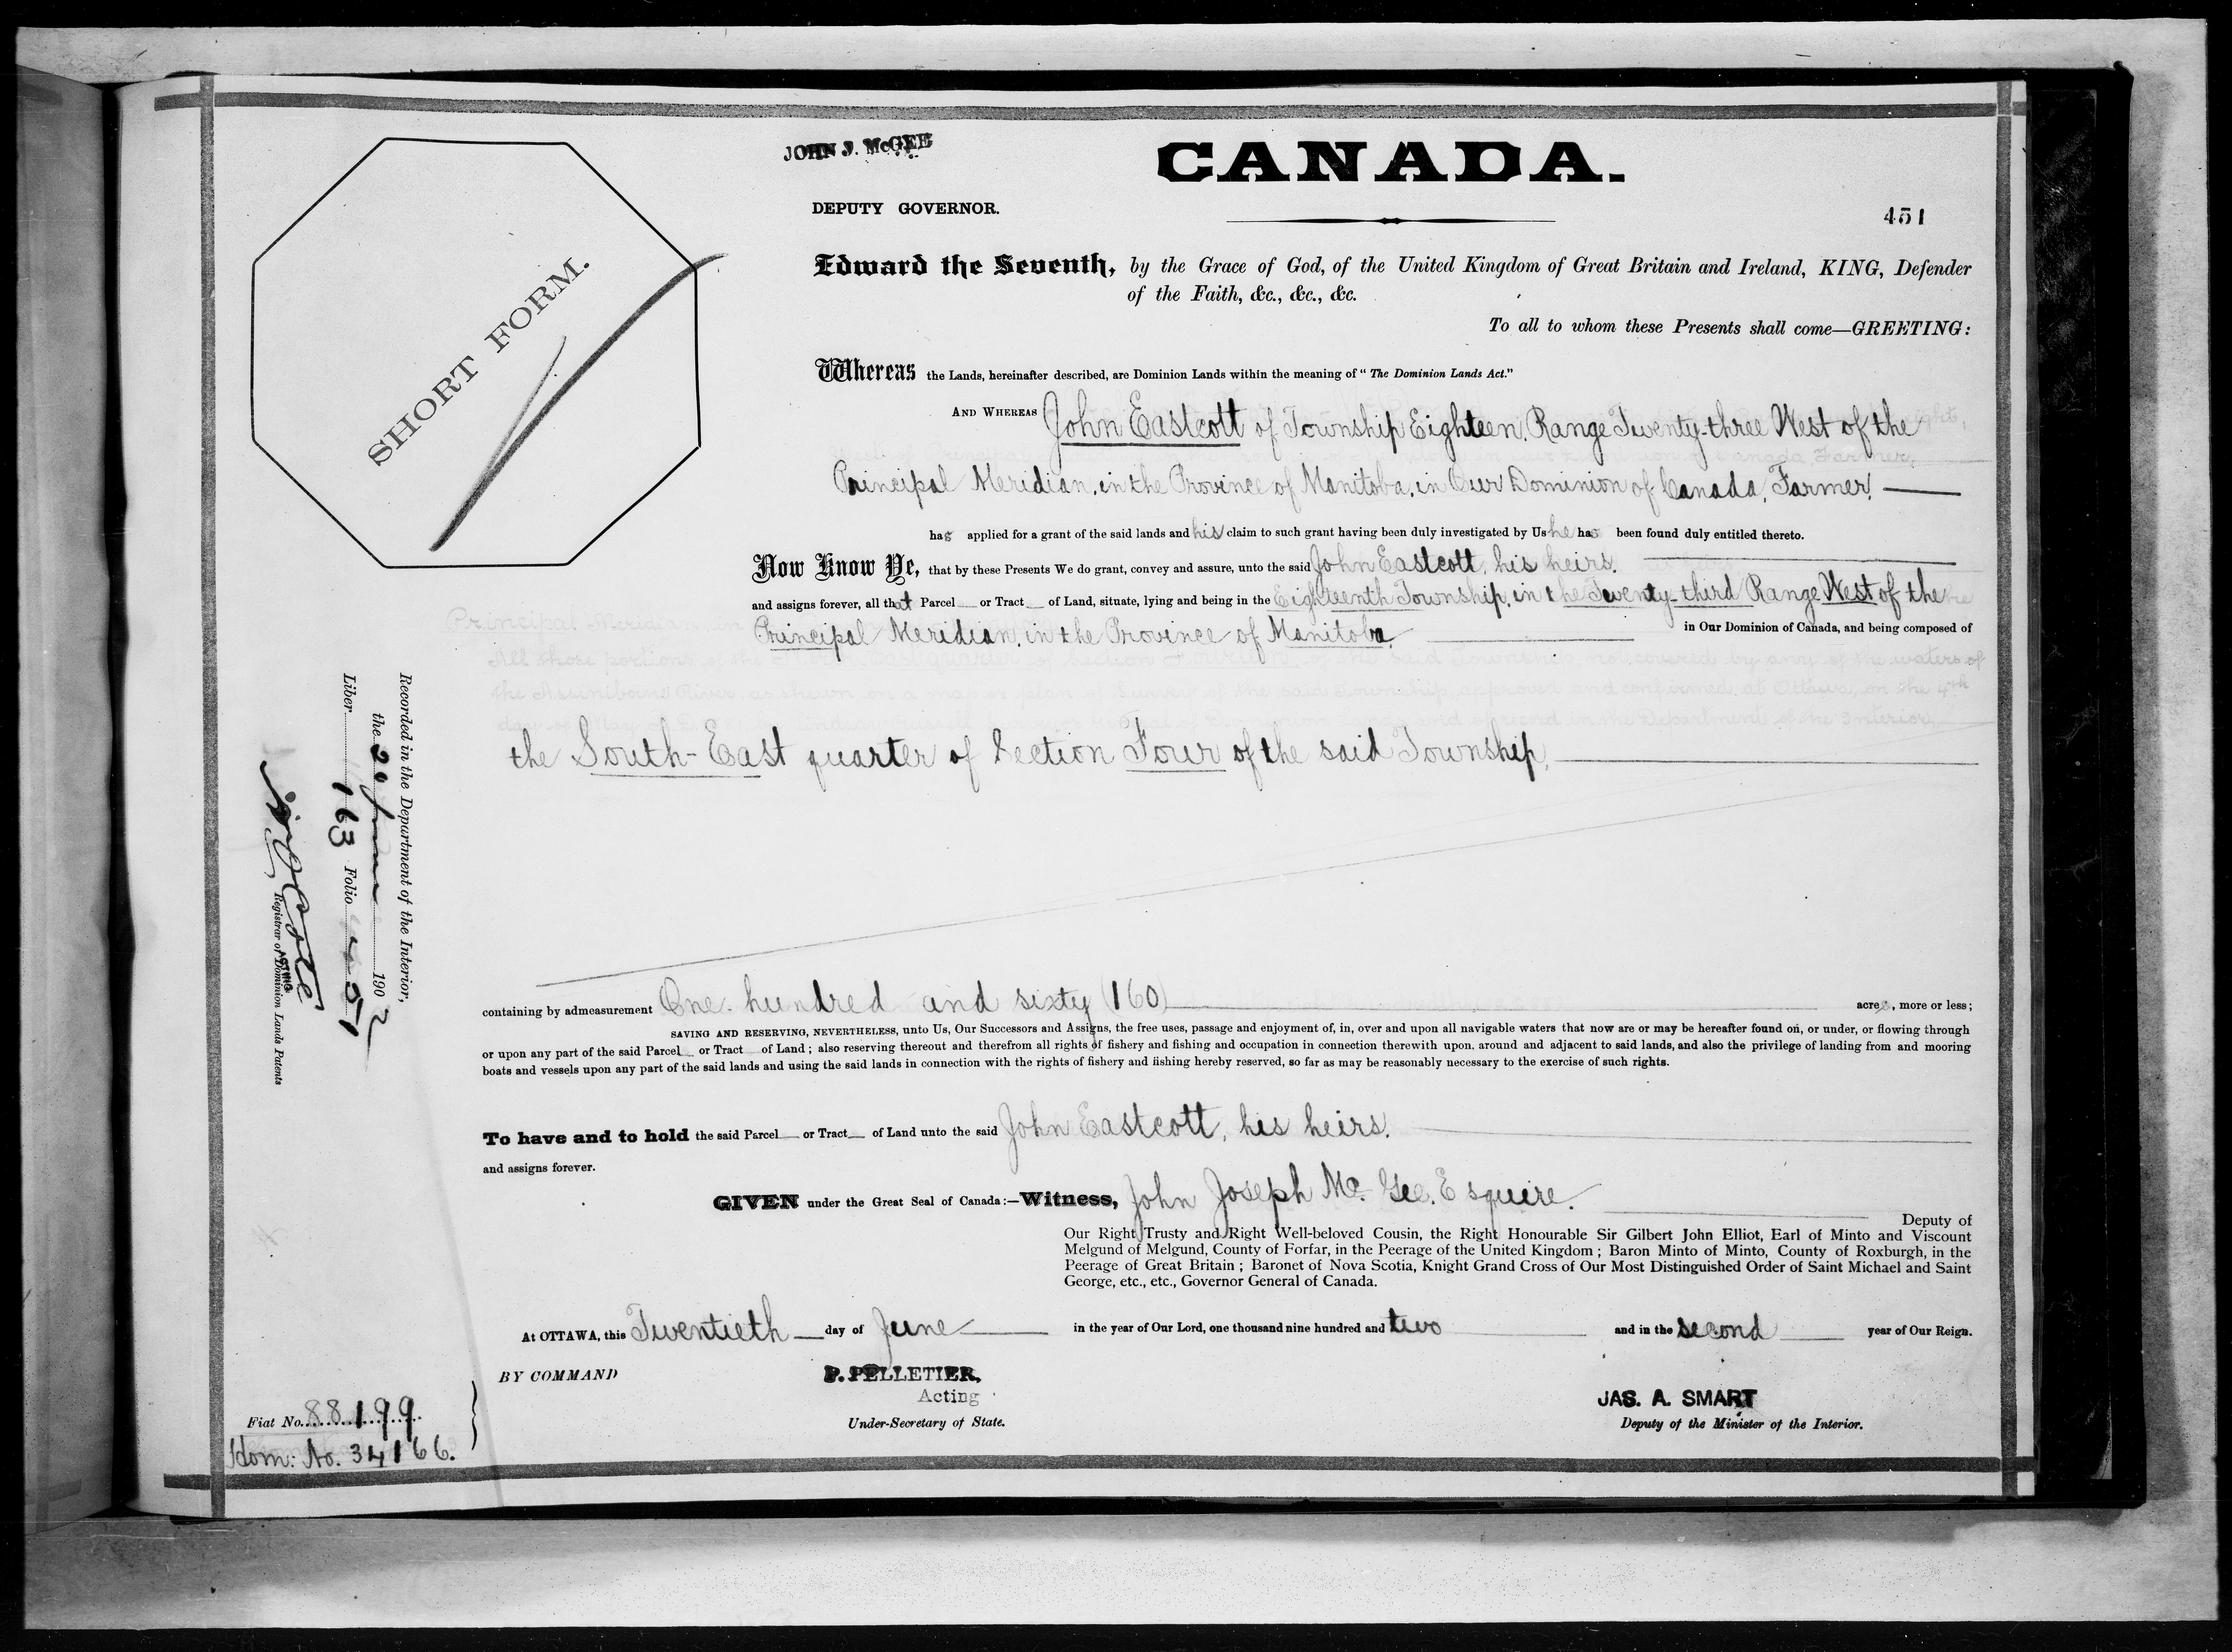 JOHN J. McGEE
CANADA.
DEPUTY GOVERNOR.
451
SHORT FORM.
Edward the Seventh, by the Grace of God, of the United Kingdom of Great Britain and Ireland, KING, Defender
of the Faith, &c., &c., &c.
To all to whom these Presents shall come—GREETING:
Whereas the Lands, hereinafter described, are Dominion Lands within the meaning of "The Dominion Lands Act."
AND WHEREAS John Eastcott of Township Eighteen, Range Twenty-three West of the
Principal Meridian, in the Province of Manitoba, in Our Dominion of Canada, Farmer,
has applied for a grant of the said lands and his claim to such grant having been duly investigated by Us he has been found duly entitled thereto.
Now Know Ye, that by these Presents We do grant, convey and assure, unto the said John Eastcott, his heirs.
and assigns forever, all that Parcel or Tract of Land, situate, lying and being in the Eighteenth Township, in the Twenty-third Range West of the
Principal Meridian, in the Province of Manitoba, in Our Dominion of Canada, and being composed of
the South-East quarter of Section Four of the said Township,
containing by admeasurement One hundred and sixty (160) acres, more or less;
SAVING AND RESERVING, NEVERTHELESS, unto Us, Our Successors and Assigns, the free uses, passage and enjoyment of, in, over and upon all navigable waters that now are or may be hereafter found on, or under, or flowing through
or upon any part of the said Parcel or Tract of Land; also reserving thereout and therefrom all rights of fishery and fishing and occupation in connection therewith upon, around and adjacent to said lands, and also the privilege of landing from and mooring
boats and vessels upon any part of the said lands and using the said lands in connection with the rights of fishery and fishing hereby reserved, so far as may be reasonably necessary to the exercise of such rights.
To have and to hold the said Parcel or Tract of Land unto the said John Eastcott, his heirs.
and assigns forever.
GIVEN under the Great Seal of Canada:—Witness, John Joseph Mc. Gee, Esquire.
Deputy of
Our Right Trusty and Right Well-beloved Cousin, the Right Honourable Sir Gilbert John Elliot, Earl of Minto and Viscount
Melgund of Melgund, County of Forfar, in the Peerage of the United Kingdom; Baron Minto of Minto, County of Roxburgh, in the
Peerage of Great Britain; Baronet of Nova Scotia, Knight Grand Cross of Our Most Distinguished Order of Saint Michael and Saint
George, etc., etc., Governor General of Canada.
At OTTAWA, this Twentieth day of June in the year of Our Lord, one thousand nine hundred and two and in the second year of Our Reign.
BY COMMAND
P. PELLETIER,
Acting
Under-Secretary of State.
JAS. A. SMART
Deputy of the Minister of the Interior.
Recorded in the Department of the Interior,
the 20 June 1902
Liber 163 Folio 451
ACTING
Registrar of Dominion Lands Patents
Fiat No. 88199
Hom: No. 34166.